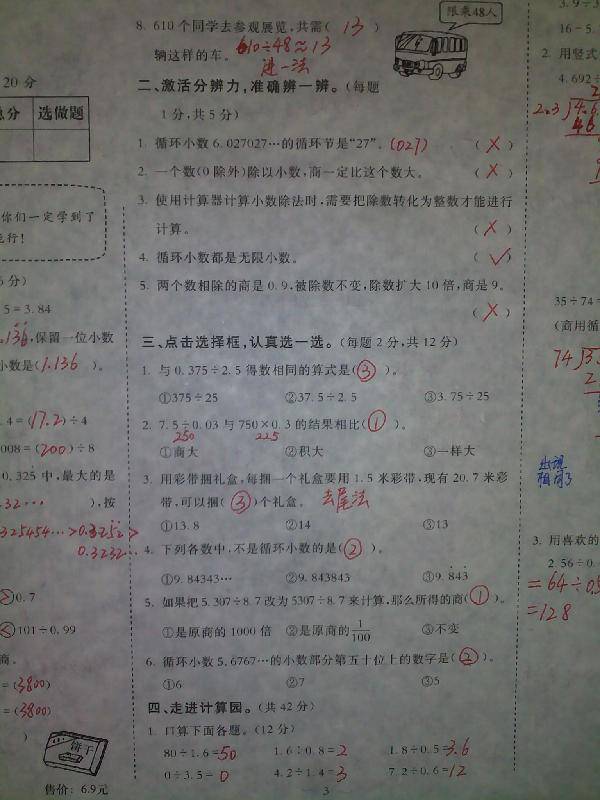 8. 610个同学去参观展览,共需( 13 )
辆这样的车。 610÷48≈13
进一法
限乘48人
二、激活分辨力,准确辨一辨。(每题
1分,共5分)
1. 循环小数6.027027…的循环节是“27”。(027) ( × )
2. 一个数(0除外)除以小数,商一定比这个数大。 ( × )
3. 使用计算器计算小数除法时,需要把除数转化为整数才能进行
计算。 ( × )
4. 循环小数都是无限小数。 ( √ )
5. 两个数相除的商是0.9,被除数不变,除数扩大10倍,商是9。
( × )
三、点击选择框,认真选一选。(每题2分,共12分)
1. 与0.375÷2.5得数相同的算式是( ③ )。
①375÷25 ②37.5÷2.5 ③3.75÷25
2. 7.5÷0.03与750×0.3的结果相比( ① )。
250 225
①商大 ②积大 ③一样大
3. 用彩带捆礼盒,每捆一个礼盒要用1.5米彩带,现有20.7米彩
带,可以捆( ③ )个礼盒。 去尾法
①13.8 ②14 ③13
4. 下列各数中,不是循环小数的是( ② )。
①9.84343… ②9.843843 ③9.8̇43̇
5. 如果把5.307÷8.7改为5307÷8.7来计算,那么所得的商( ① )。
①是原商的1000倍 ②是原商的1/100 ③不变
6. 循环小数5.6767…的小数部分第五十位上的数字是( ② )。
①6 ②7 ③5
四、走进计算园。(共42分)
1. 口算下面各题。(12分)
80÷1.6=50 1.6÷0.8=2 1.8÷0.5=3.6
0÷3.5=0 4.2÷1.4=3 7.2÷0.6=12
3
20分
总分 选做题
你们一定学到了
行!
5=3.84
保留一位小数
小数是(1.136)。
.4=(17.2)÷4
008=(200)÷8
0.325中,最大的是
.32… ),按
325454…>0.3252>
0.3232
>0.7
<101÷0.99
商。
=(3800)
=(3800)
)
饼干
售价:6.9元
3.9÷3
16-5.
2. 用竖式
4.692÷
2.3 4.6
46
35÷74=
(商用循
74
出现
相同了
3. 用喜欢的
2.56÷0.
=64÷0.5
=128